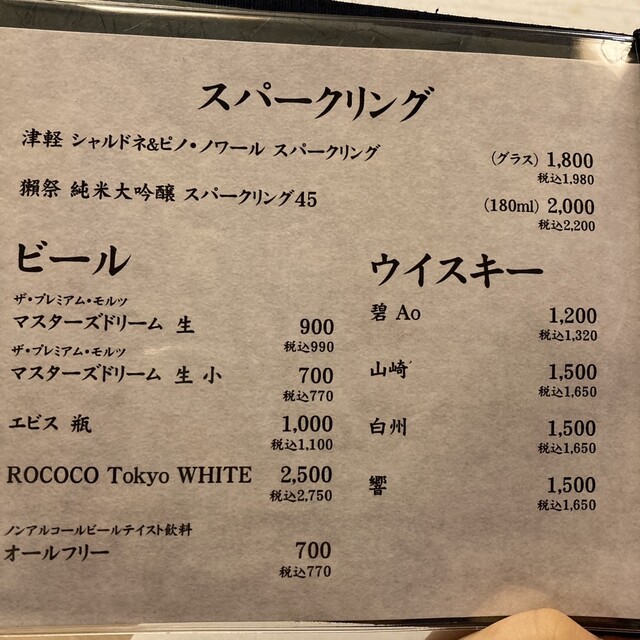 スパークリング
津軽 シャルドネ&ピノ・ノワール スパークリング (グラス) 1,800
税込1,980
獺祭 純米大吟醸 スパークリング45 (180ml) 2,000
税込2,200
ビール
ザ・プレミアム・モルツ
マスターズドリーム 生 900
税込990
ザ・プレミアム・モルツ
マスターズドリーム 生 小 700
税込770
エビス 瓶 1,000
税込1,100
ROCOCO Tokyo WHITE 2,500
税込2,750
ノンアルコールビールテイスト飲料
オールフリー 700
税込770
ウイスキー
碧 Ao 1,200
税込1,320
山崎 1,500
税込1,650
白州 1,500
税込1,650
響 1,500
税込1,650